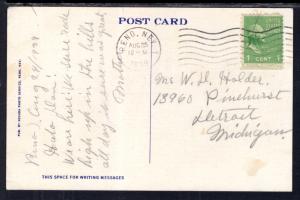 POST CARD
RENO, NEV.
AUG 25
12 - M
1 CENT 1
PUB. BY NEVADA PHOTO SERVICE, RENO, NEV.
Reno, Aug 25/1939
Hulo Dear:
We are here! We were rode
high up in the hills
all day & sure was great.
Mother
Mrs W. H. Holder.
13960 Pinehurst
Detroit
Michigan.
THIS SPACE FOR WRITING MESSAGES